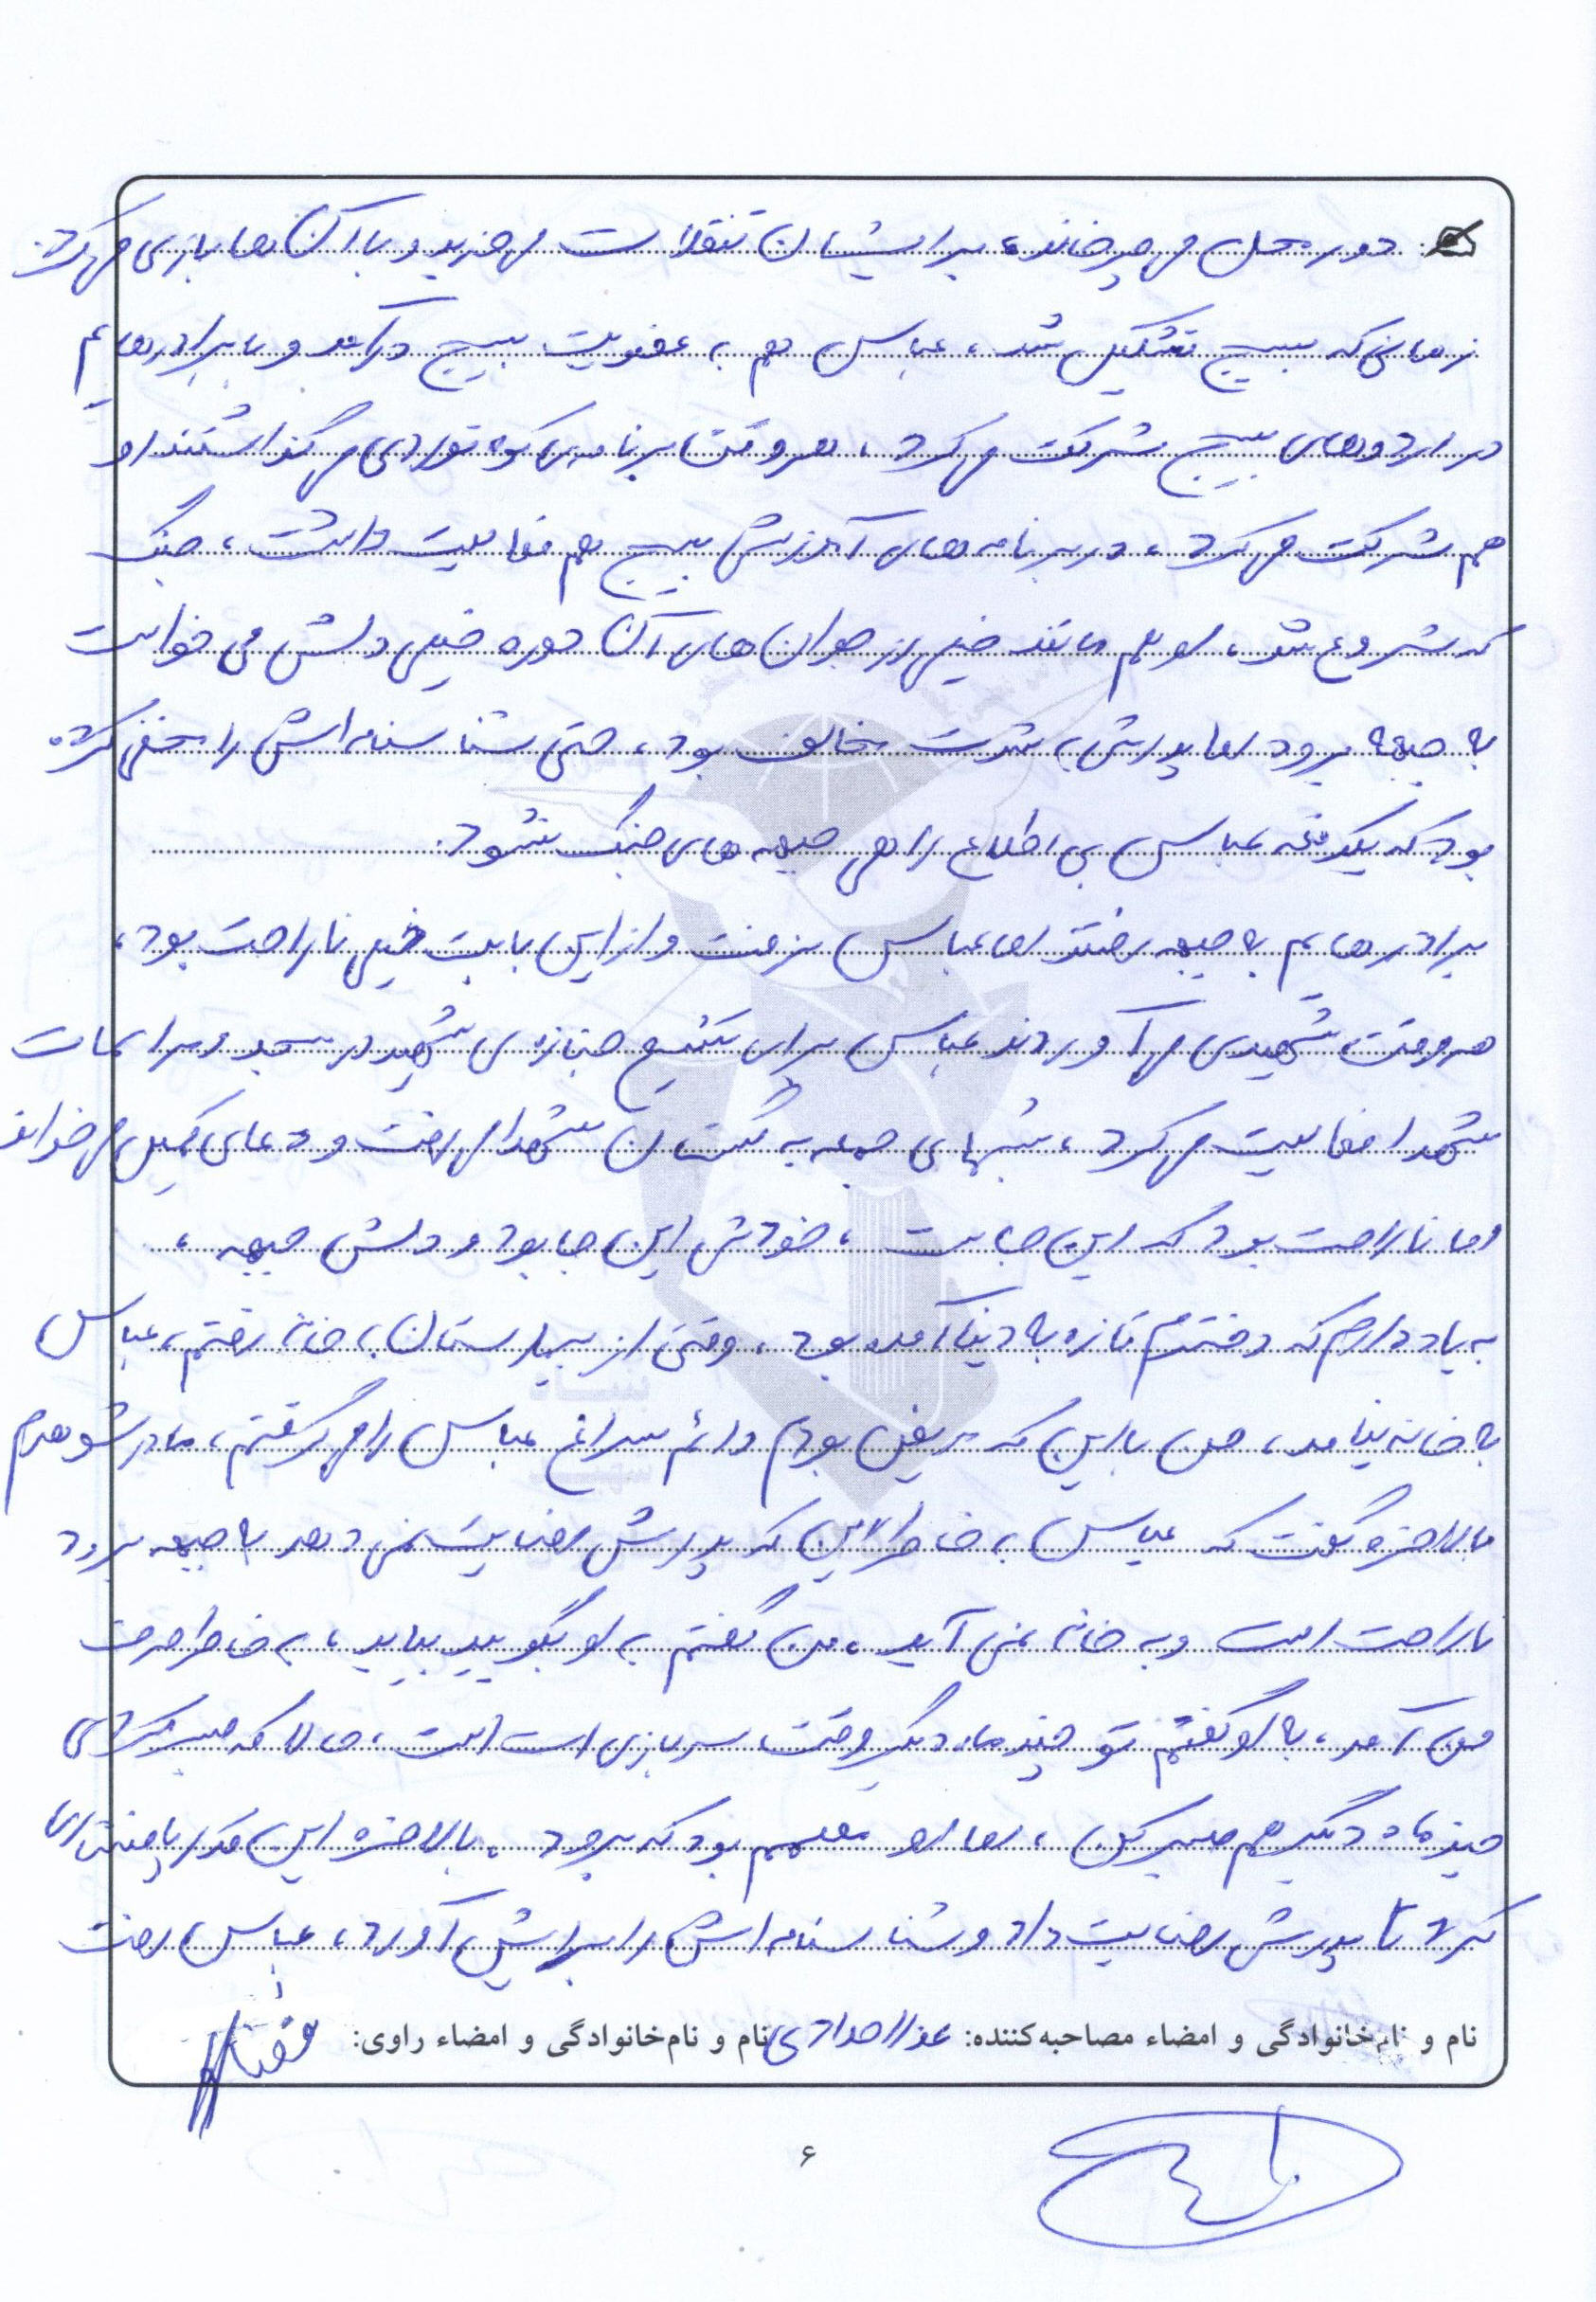 دور محل می چرخاند، برایشان تنقلات می خرید و با آن ها بازی می کرد.
زمانی که بسیج تشکیل شد، عباس هم به عضویت بسیج درآمد و با برادرهایم
در اردوهای بسیج شرکت می کرد، هر وقت برنامه ی کوه نوردی می گذاشتند او
هم شرکت می کرد، در برنامه های آموزش بسیج هم فعالیت داشت، جنگ
که شروع شد، او هم مانند خیلی از جوان های آن دوره خیلی دلش می خواست
به جبهه برود اما پدرش به شدت مخالف بود، حتی شناسنامه اش را مخفی کرده
بود که یکدفعه عباس بی اطلاع راهی جبهه های جنگ نشود.
برادرهایم به جبهه رفتند اما عباس نرفت و از این بابت خیلی ناراحت بود،
هر وقت شهیدی می آوردند عباس برای تشییع جنازه ی شهید در مسجد و مراسمات
شهدا فعالیت می کرد، شبهای جمعه به گلستان شهدا می رفت و دعای کمیل می خواند
اما ناراحت بود که این جاست، خودش این جا بود و دلش جبهه،
به یاد دارم که دخترم تازه به دنیا آمده بود، وقتی از بیمارستان به خانه رفتم، عباس
به خانه نیامد، من با این که مریض بودم دائم سراغ عباس را می گرفتم، مادر شوهرم
بالاخره گفت که عباس به خاطر این که پدرش رضایت نمی دهد به جبهه برود
ناراحت است و به خانه نمی آید، من گفتم به او بگویید بیاید، به خاطر حرف
من آمد، به او گفتم تو چند ماه دیگر وقت سربازی است است، حالا که صبر کردی
چند ماه دیگر هم صبر کن، اما او مصمم بود که برود، بالاخره این قدر پافشاری
کرد تا پدرش رضایت داد و شناسنامه اش را برایش آورد، عباس رفت
نام و نام‌خانوادگی و امضاء مصاحبه‌کننده: عذرا حدادی نام و نام‌خانوادگی و امضاء راوی:
۶